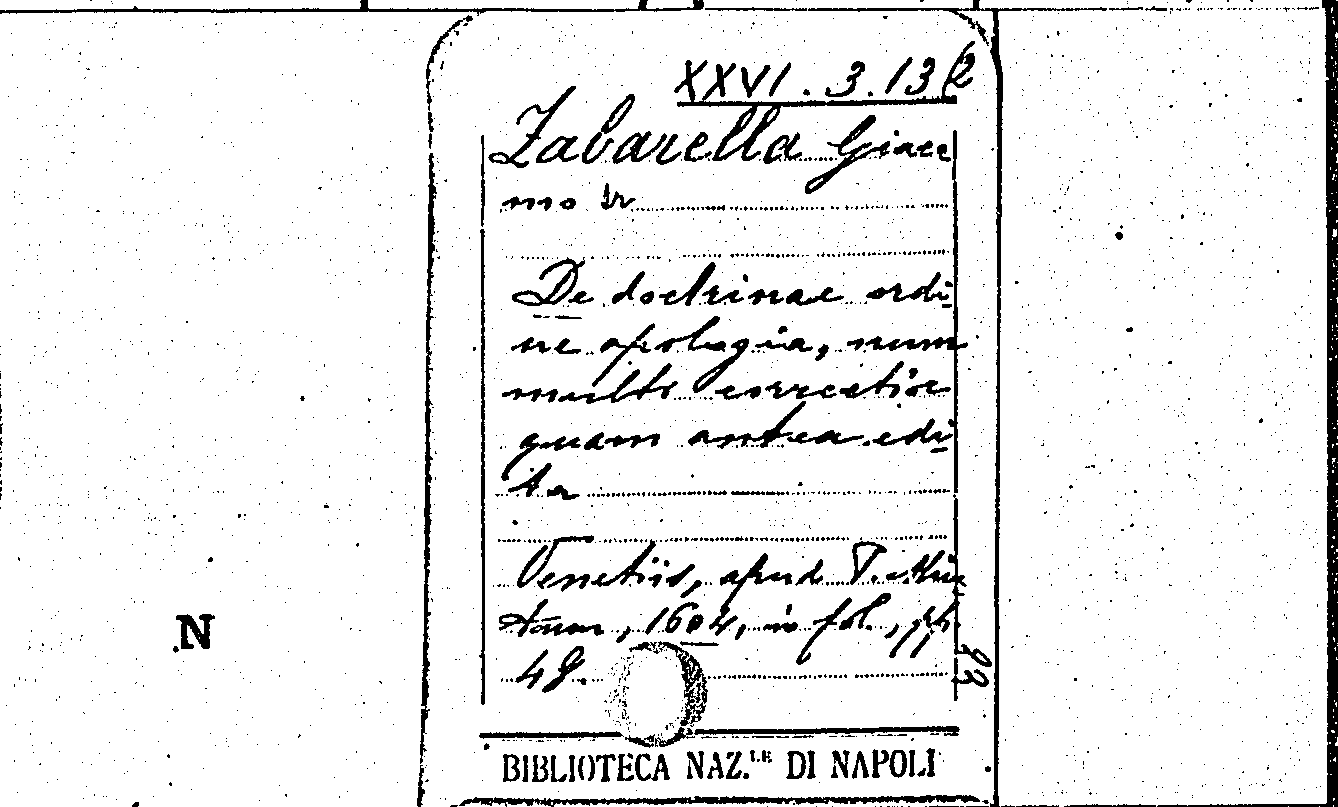 XXVI.3.13(2
Zabarella Giaco
mo Jr
De doctrinae ordi-
ne apologia, nunc
multo correctior
quam antea edi-
ta
Venetiis, apud P.
1604, in fol., pp.
48.
N
BIBLIOTECA NAZ.LE DI NAPOLI